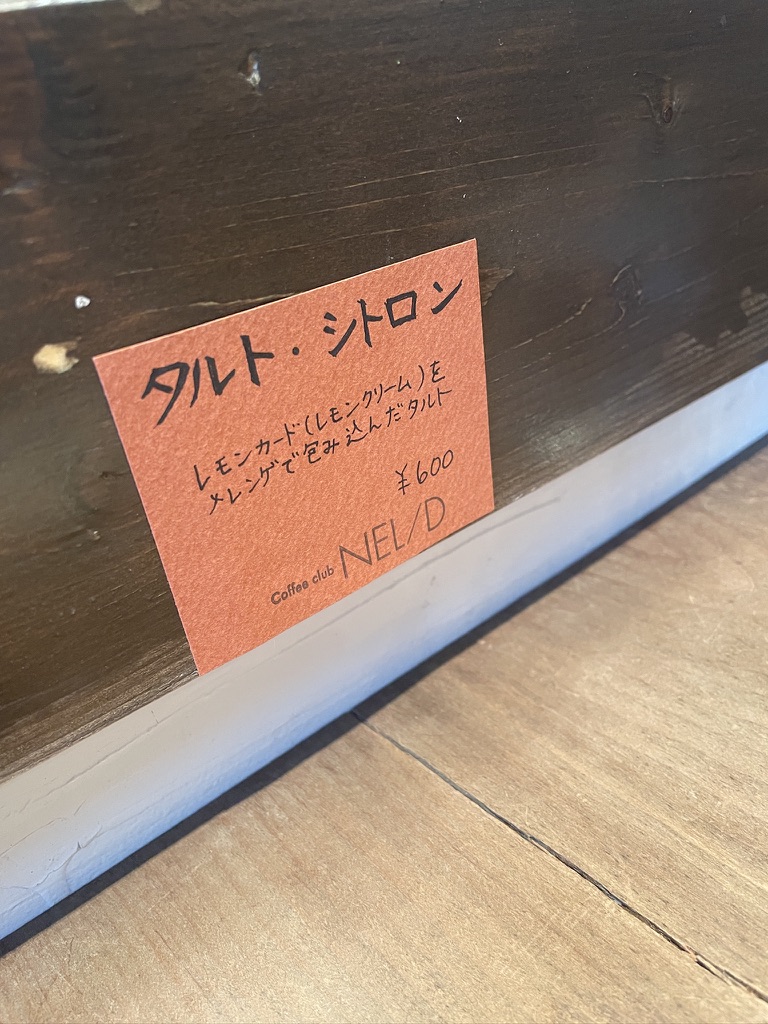 タルト・シトロン
レモンカード(レモンクリーム)を
メレンゲで包み込んだタルト
¥600
Coffee club NEL/D